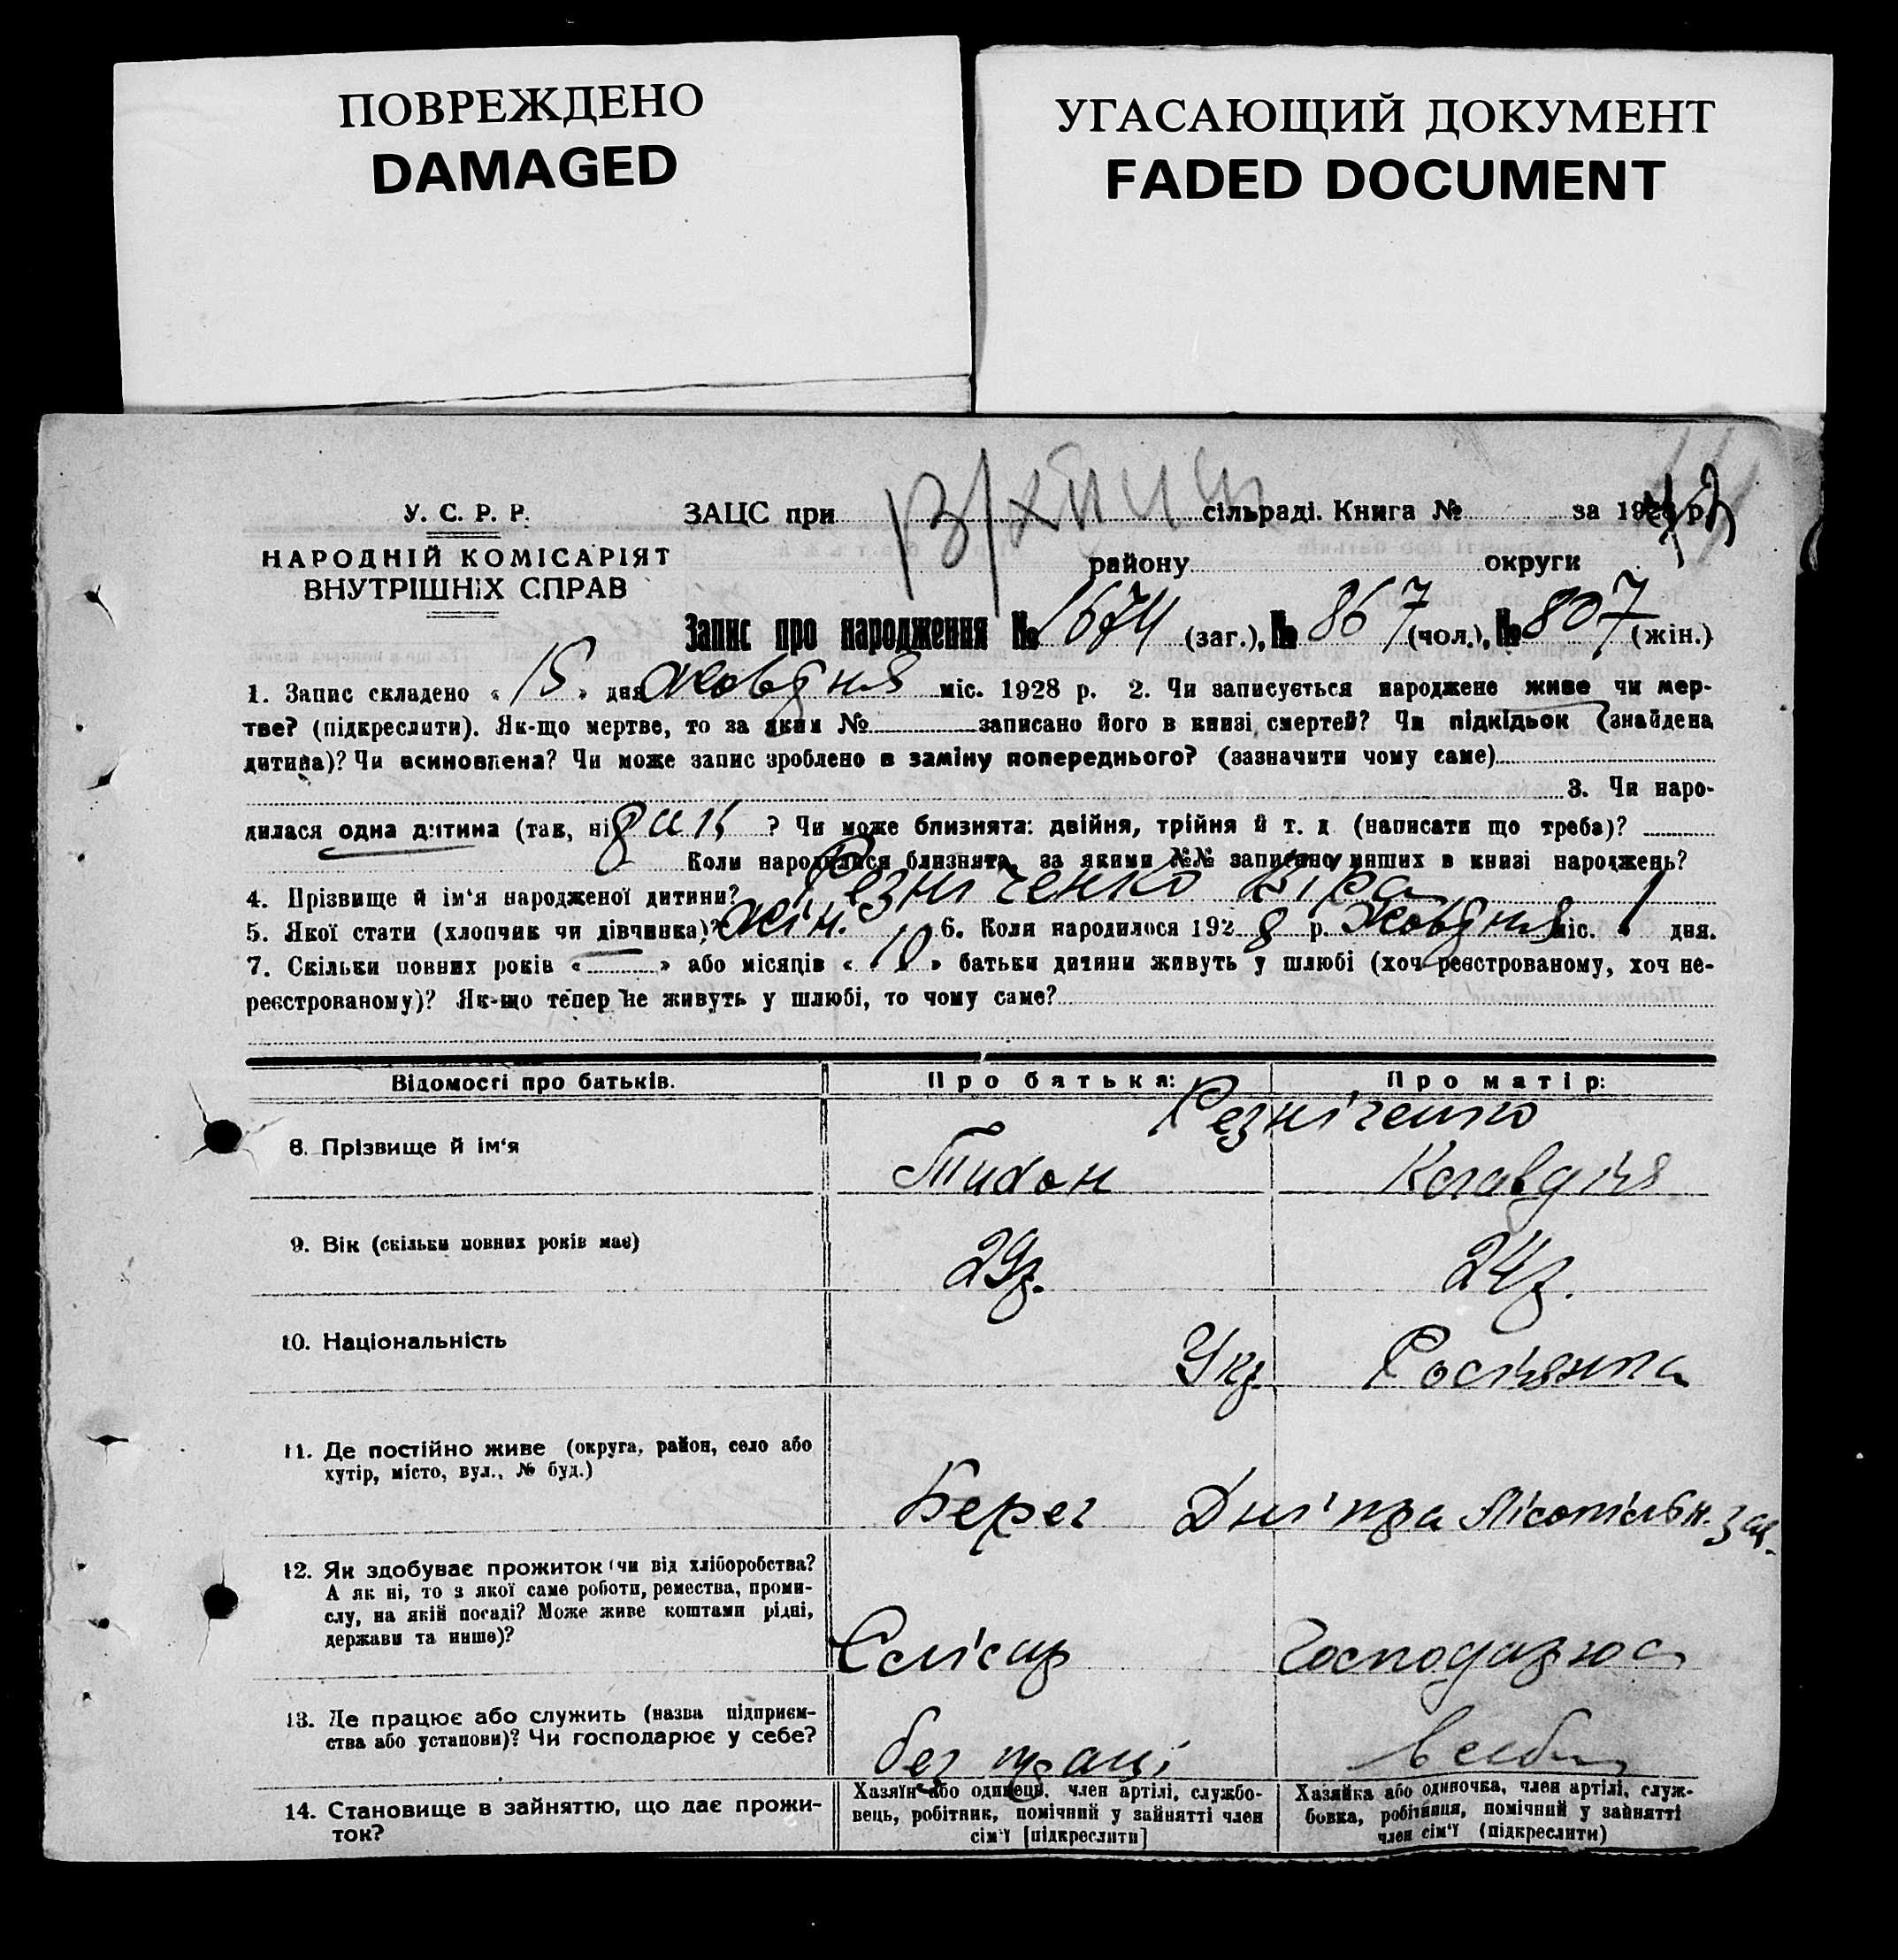 ПОВРЕЖДЕНО
DAMAGED
УГАСАЮЩИЙ ДОКУМЕНТ
FADED DOCUMENT
У. С. Р. Р.
НАРОДНІЙ КОМІСАРІЯТ
ВНУТРІШНІХ СПРАВ
ЗАЦС при сільраді. Книга № за 192 р.
району округи
Запис про народження № 1674 (заг.), № 867 (чол.), № 807 (жін.)
1. Запис складено « 15 » дня жовтня міс. 1928 р. 2. Чи записується народжене живе чи мер-
тве? (підкреслити). Як-що мертве, то за яким № записано його в книзі смертей? Чи підкідьок (знайдена
дитина)? Чи всиновлена? Чи може запис зроблено в заміну попереднього? (зазначити чому саме)
3. Чи наро-
дилася одна дитина (так, ні) ? Чи може близнята: двійня, трійня й т. д. (написати що треба)?
Коли народилися близнята, за якими №№ записано инших в книзі народжень?
4. Прізвище й ім'я народженої дитини? Резніченко Віра
5. Якої стати (хлопчик чи дівчинка)? жін. 6. Коли народилося 1928 р. жовтня міс. 1 дня.
7. Скільки повних років « — » або місяців « 10 » батьки дитини живуть у шлюбі (хоч реєстрованому, хоч не-
реєстрованому)? Як-що тепер не живуть у шлюбі, то чому саме?
Відомості про батьків. Про батька: Про матір:
Резніченко
8. Прізвище й ім'я Тихон Клавдія
9. Вік (скільки повних років має) 29р. 24р.
10. Національність Укр. Росіянка
11. Де постійно живе (округа, район, село або
хутір, місто, вул., № буд.)
Берег Дніпра Лісопільн. зав.
12. Як здобуває прожиток (чи від хліборобства?
А як ні, то з якої саме роботи, ремества, проми-
слу, на якій посаді? Може живе коштами рідні,
держави та инше)?
Слюсар Господарює
13. Де працює або служить (назва підприєм-
ства або установи)? Чи господарює у себе?
без праці в себе
14. Становище в зайняттю, що дає прожи-
ток?
Хазяїн або одинець, член артілі, службо-
вець, робітник, помічний у зайнятті член
сім'ї [підкреслити]
Хазяйка або одиночка, член артілі, служ-
бовка, робітниця, помічний у зайнятті
член сім'ї (підкреслити)